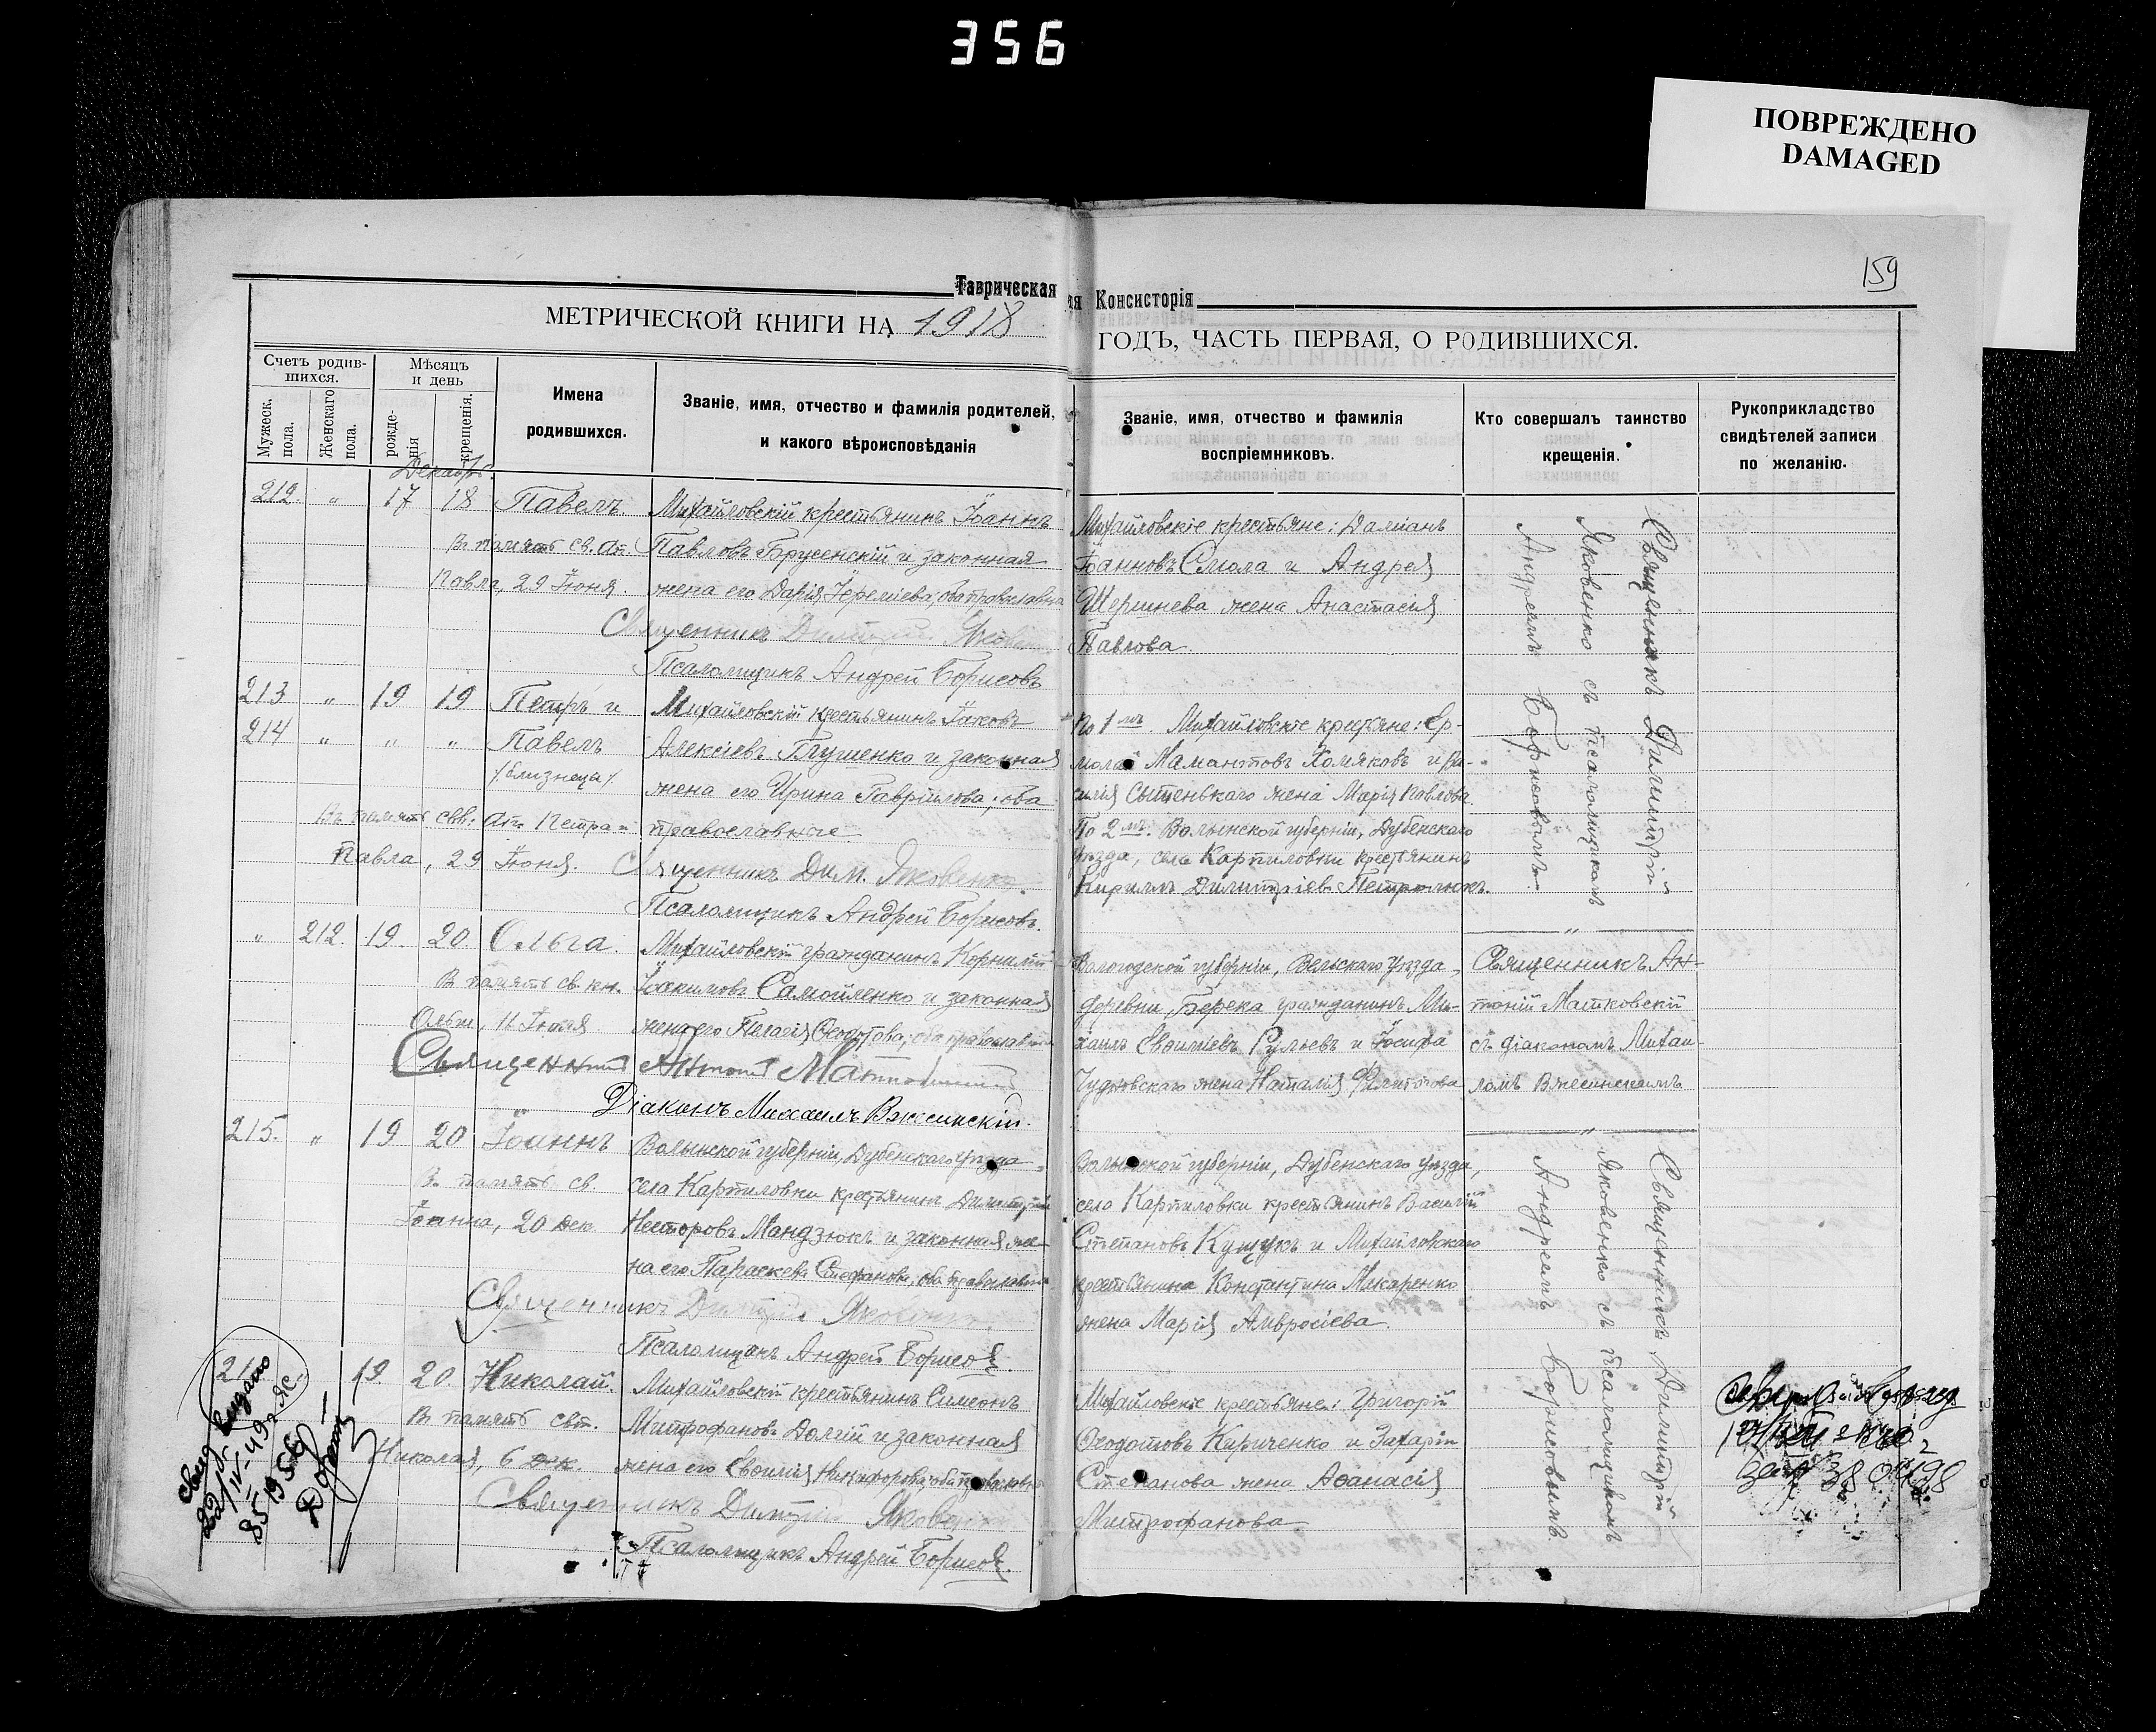 356
ПОВРЕЖДЕНО
DAMAGED
159
Таврическая
ая Консисторія
МЕТРИЧЕСКОЙ КНИГИ НА 1918
ГОДЪ, ЧАСТЬ ПЕРВАЯ, О РОДИВШИХСЯ.
Счетъ родив-
шихся.
Мужеск. пола.
Женскаго пола.
Мѣсяцъ
и день
рожде-
нія
крещенія.
Имена
родившихся.
Званіе, имя, отчество и фамилія родителей,
и какого вѣроисповѣданія
Званіе, имя, отчество и фамилія
воспріемниковъ.
Кто совершалъ таинство
крещенія.
Рукоприкладство
свидѣтелей записи
по желанію.
Декабрь.
212. " 17 18 Павелъ.
В память св. Ап.
Павла, 29 Іюня.
Михайловскій крестьянинъ Іоаннъ
Павловъ Брусенскій и законная
жена его Дарія Іереміева, оба православные
Священникъ Димитрій Яковенко
Псаломщикъ Андрей Борисовъ
Михайловскіе крестьяне: Даміанъ
Іоанновъ Смола и Андрея
Шершнева жена Анастасія
Павлова.
Священникъ Димитрій
Яковенко съ псаломщикомъ
Андреемъ Борисовымъ
213 " 19 19 Петръ и
214 " " " Павелъ
/близнецы/
Въ память свв. Ап. Петра и
Павла, 29 Іюня.
Михайловскій крестьянинъ Іаковъ
Алексіевъ Глушенко и законная
жена его Ирина Гавріилова; оба
православные.
Священникъ Дим. Яковенко.
Псаломщикъ Андрей Борисовъ.
По 1мъ. Михайловскіе крестьяне: Ер-
молай Мамантовъ Хомяковъ и Ва-
силія Сытенькаго жена Марія Павлова.
По 2мъ. Волынской губерніи, Дубенскаго
уѣзда, села Карпиловки крестьянинъ
Кириллъ Димитріевъ Петролюкъ.
" 212. 19. 20. Ольга.
В память св. кн.
Ольги, 11 Іюля
Михайловскій гражданинъ Корнилій
Іоакимовъ Самойленко и законная
жена его Пелагія Ѳеодотова; оба православные
Священникъ Антоній Матковскій
Діаконъ Михаилъ Вжесинскій.
Вологодской губерніи, Вельскаго уѣзда,
деревни Берека гражданинъ Ми-
хаилъ Евѳиміевъ Рульевъ и Іосифа
Чудновскаго жена Наталія Филиппова
Священникъ Ан-
тоній Матковскій
съ діакономъ Михаи-
ломъ Вжесинскимъ
215. " 19 20 Іоаннъ
В память св.
Іоанна, 20 дек
Волынской губерніи, Дубенскаго уѣзда,
села Карпиловки крестьянинъ Димитрій
Несторовъ Мандзюкъ и законная же-
на его Параскева Стефанова, оба православные
Священникъ Димитрій Яковенко.
Псаломщикъ Андрей Борисовъ.
Волынской губерніи, Дубенскаго уѣзда,
села Карпиловки крестьянинъ Василій
Степановъ Кущукъ и Михайловскаго
крестьянина Константина Макаренко
жена Марія Амвросіева.
Священникъ Димитрій
Яковенко съ псаломщикомъ
Андреемъ Борисовымъ
19. 20. Николай.
В память свт.
Николая, 6 дек.
Михайловскій крестьянинъ Симеонъ
Митрофановъ Долгій и законная
жена его Евѳимія Никифорова, оба православн.
Священникъ Димитрій Яковенко
Псаломщикъ Андрей Борисовъ.
Михайловскіе крестьяне: Григорій
Ѳеодотовъ Кириченко и Захарія
Степанова жена Аѳанасія
Митрофанова
свид выдано
22/IV-49г